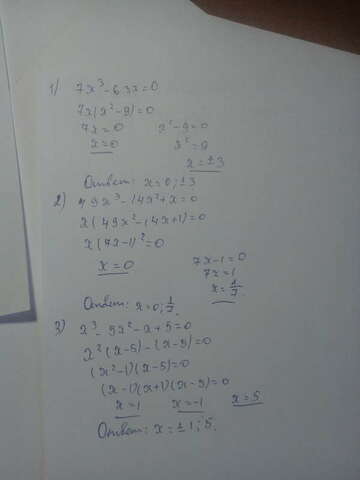 1) 7x³ - 63x = 0
7x(x² - 9) = 0
7x = 0 x² - 9 = 0
x = 0 x² = 9
x = ±3
Ответ: x = 0; ±3
2) 49x³ - 14x² + x = 0
x(49x² - 14x + 1) = 0
x(7x - 1)² = 0
x = 0 7x - 1 = 0
7x = 1
x = 1/7
Ответ: x = 0; 1/7.
3) x³ - 5x² - x + 5 = 0
x²(x - 5) - (x - 5) = 0
(x² - 1)(x - 5) = 0
(x - 1)(x + 1)(x - 5) = 0
x = 1 x = -1 x = 5
Ответ: x = ±1; 5.